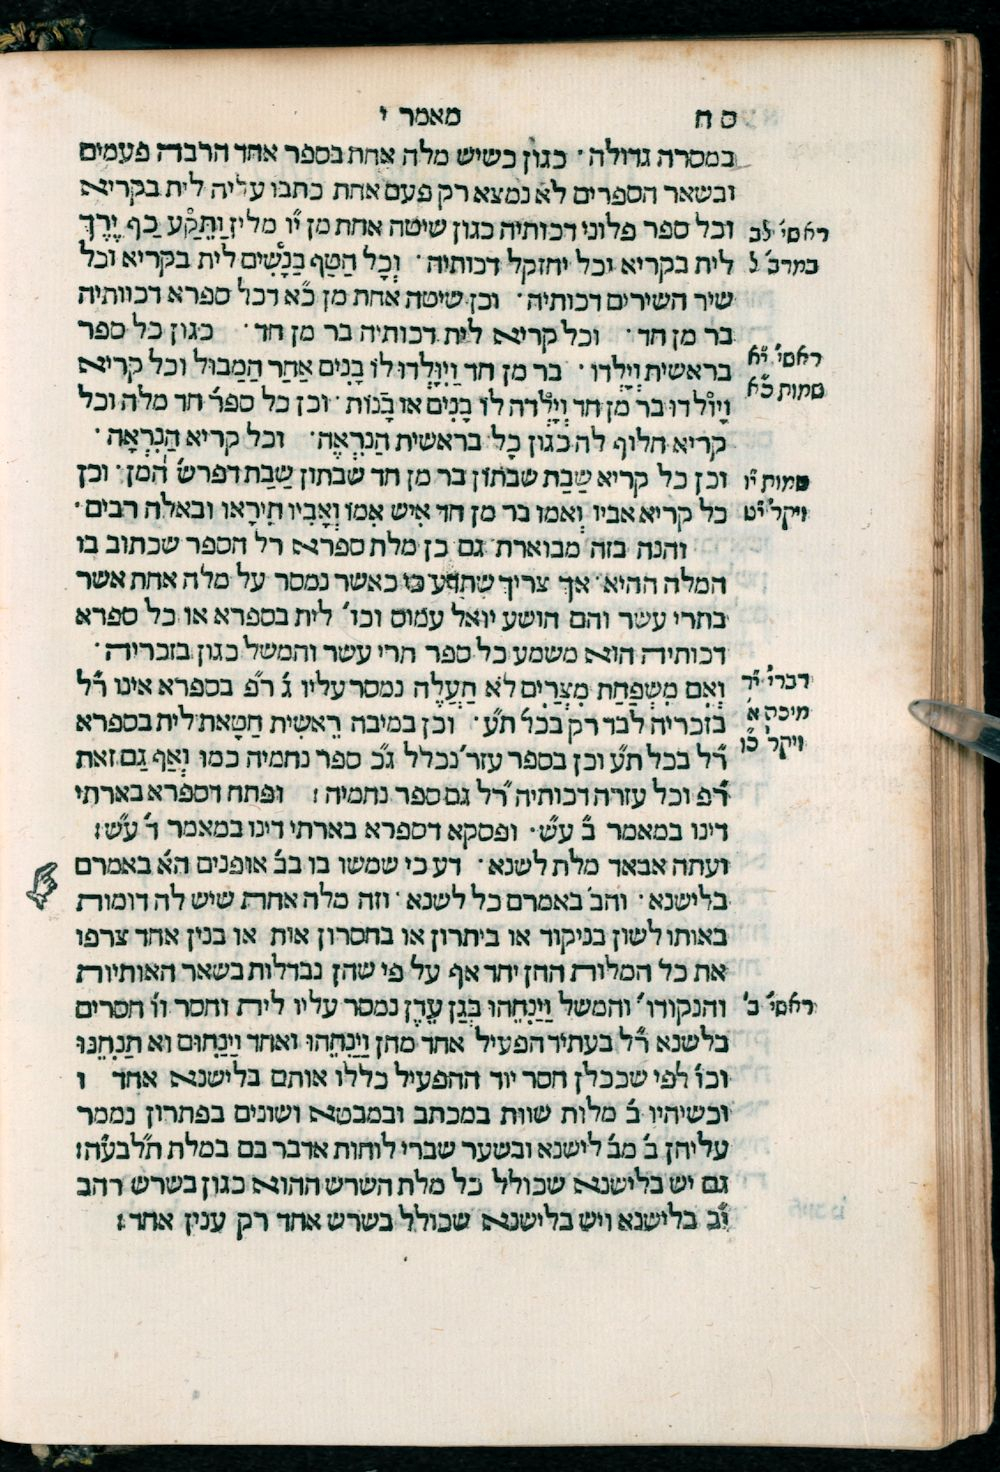 ס ח
מאמר י
במסרה גדולה · כגון כשיש מלה אחת בספר אחד הרבה פעמים
ובשאר הספרים לא נמצא רק פעם אחת כתבו עליה לית בקריא
וכל ספר פלוני דכותיה כגון שיטה אחת מן י״ו מלין וַתֵּקַע כַף יֶרֶךְ
ראשי׳ לב
לית בקריא וכל יחזקל דכותיה · וְכָל הַטַף בַנָשִׁים לית בקריא וכל
במדב׳ ל
שיר השירים דכותיה · וכן שיטה אחת מן כ״א דכל ספרא דכוותיה
בר מן חד · וכל קריא לית דכותיה בר מן חד · כגון כל ספר
בראשית וְיָלְדוּ · בר מן חד וַיִוָלְדוּ לוֹ בָנִים אַחַר הַמַבוּל וכל קריא
ראשי׳ י״א
וַיוֹלְדוּ בר מן חד וְיָלְדה לוֹ בָנִים או בָנוֹת · וכן כל ספר׳ חד מלה וכל
שמות כ״א
קריא חלוף לה כגון כָל בראשית הַנִרְאֶה · וכל קריא הַנִרְאָה ·
וכן כל קריא שַבַת שבתון בר מן חד שבתון שַבַת דפרש׳ המן · וכן
שמות י״ו
כל קריא אביו וְאמו בר מן חד אִיש אִמוֹ וְאָבִיו תִירָאו ובאלה רבים ·
ויקר׳ י״ט
והנה בזה מבוארת גם כן מלת ספרא רל הספר שכתוב בו
המלה ההיא · אך צריך שתדע כי כאשר נמסר על מלה אחת אשר
בתרי עשר והם הושע יואל עמוס וכו׳ לית בספרא או כל ספרא
דכותיה הוא משמע כל ספר תרי עשר והמשל כגון בזכריה ·
וְאִם מִשְפַחַת מִצְרַיִם לֹא תַעֲלֶה נמסר עליו ג׳ ר״פ בספרא אינו ר״ל
בזכריה לבד רק בכל׳ ת״ע · וכן במיכה רֵאשִית חַטָאת לית בספרא
מיכה א׳
ר״ל בכל ת״ע וכן בספר עזר׳ נכלל ג״כ ספר נחמיה כמו וְאַף גַם זאת
ויקר׳ כ״ו
ר״פ וכל עזרה דכותיה ר״ל גם ספר נחמיה : ופתח דספרא בארתי
דינו במאמר ב׳ ע״ש · ופסקא דספרא בארתי דינו במאמר ד׳ ע״ש :
ועתה אבאר מלת לשנא · דע כי שמשו בו בב׳ אופנים הא׳ באמרם
בלישנא · והב׳ באמרם כל לשנא · וזה מלה אחת שיש לה דומות
באותו לשון בניקוד או ביתרון או בחסרון אות או בנין אחד צרפו
את כל המלות ההן יחד אף על פי שהן נבדלות בשאר האותיות
והנקודו׳ והמשל וַיַנִחֵהוּ בְגַן עֵדֶן נמסר עליו לית וחסר וו׳ חסרים
ראשי׳ ב׳
בלשנא ר״ל בעתיד הפעיל אחד מהן וַיַנִחֵהוּ ואחד וַיַנִחוּם וא תַנִחֵנוּ
וכו׳ לפי שככלן חסר יוד ההפעיל כללו אותם בלישנא אחד ו
וכשיהיו ב׳ מלות שוות במכתב ובמבטא ושונים בפתרון נמסר
עליהן ב׳ מב׳ לישנא ובשער שברי לוחות אדבר בם במלת תלבע״ה :
גם יש בלישנא שכולל כל מלת השרש ההוא כגון בשרש רהב
י״ב בלישנא ויש בלישנא שכולל בשרש אחד רק ענין אחד :